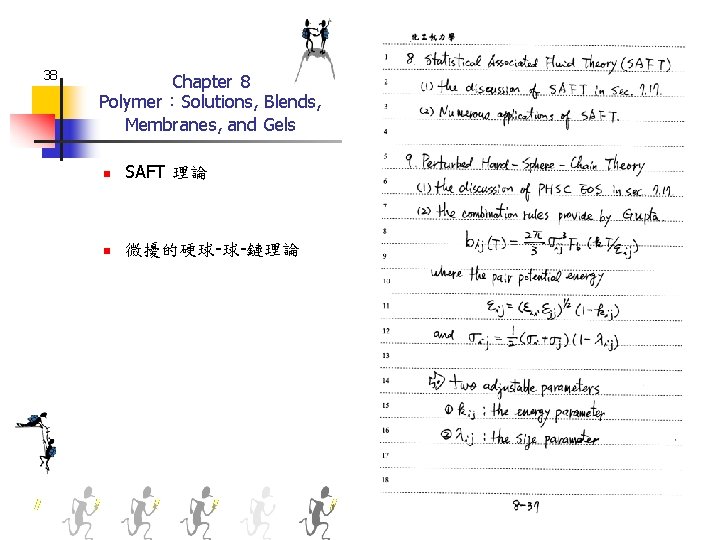 38
Chapter 8
Polymer：Solutions, Blends,
Membranes, and Gels
SAFT 理論
微擾的硬球-球-鏈理論
化工熱力學
1 8. Statistical Associated Fluid Theory (SAFT)
2 (1) the discussion of SAFT in sec. 7.17.
3 (2) Numerous applications of SAFT
4
5 9. Perturbed Hard-Sphere-Chain Theory
6 (1) the discussion of PHSC EOS in sec. 7.17
7 (2) the combination rules provide by Gupta
8 b_ij(T) = 2π/3 σ_ij^3 F_b (kT/ε_ij)
9
10 where the pair potential energy
11 ε_ij = (ε_i ε_j)^1/2 (1-k_ij)
12 and σ_ij = 1/2 (σ_i+σ_j)(1-λ_ij)
13
14 two adjustable parameters
15 ① k_ij : the energy parameter
16 ② λ_ij : the size parameter
17
18
8-37